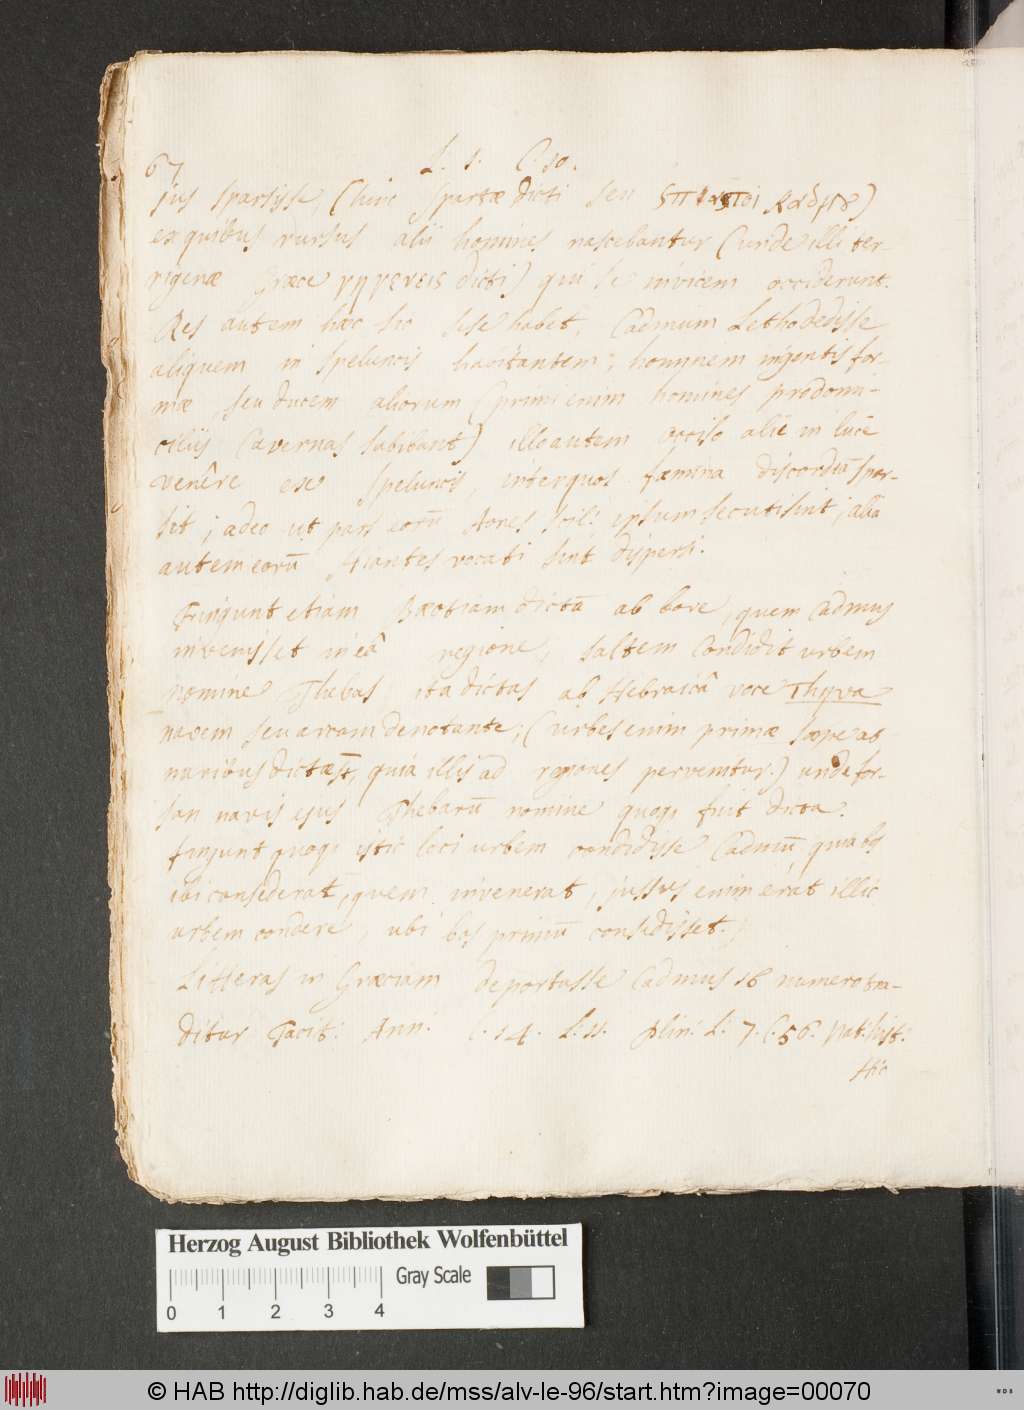 67
L. 1. C. 10.
jus sparsisse, (hinc Spartæ dicti seu σπαρτοι Καδμου)
ex quibus rursus alii homines nascebantur (unde illi ter-
rigenæ græce γηγενεις dicti) qui se invicem occiderunt.
Res autem hæc sic sese habet, Cadmum Letho dedisse
aliquem in speluncis habitantem; hominem ingentis for-
mæ, seu ducem aliorum (primi enim homines pro domi-
ciliis cavernas habebant) illo autem occiso alii in lucē
venêre ex speluncis, inter quos fœmina discordiā spar-
sit; adeo ut pars eorū Aones scil: ipsum secuti sint, alia
autem eorū Hiantes vocati sint dispersi.
Fingunt etiam Bœotiam dictā ab bove, quem Cadmus
invenisset in eâ regione, saltem condidit urbem
nomine Thebas, ita dictas ab Hebraicâ voce Thyva
navem seu arcam denotante; (urbes enim primæ sæpe ab
navibus dictæ st, quia illis ad regiones pervenitur.) unde for-
san navis ejus Thebarū nomine quoq; fuit dicta.
fingunt quoq; istic loci urbem condidisse Cadmū, quia bos
ibi consederat, quem invenerat, jussus enim erat illic
urbem condere, ubi bos primū consedisset.)
Litteras in Græciam deportasse Cadmus 16 numero tra-
ditur Tacit: Ann: C. 14. L. 11. Plin: L. 7. C. 56. Nat. hist:
Hic
Herzog August Bibliothek Wolfenbüttel
Gray Scale
0 1 2 3 4
© HAB http://diglib.hab.de/mss/alv-le-96/start.htm?image=00070